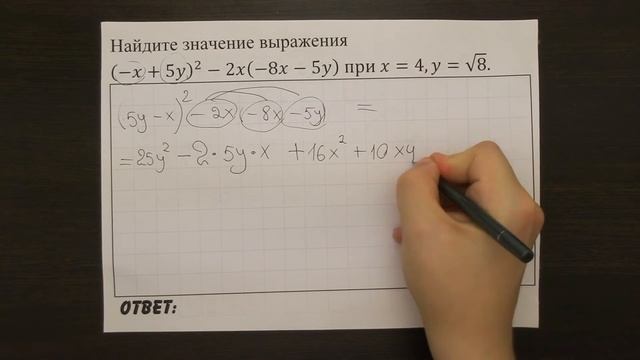 Найдите значение выражения
(−x + 5y)² − 2x(−8x − 5y) при x = 4, y = √8.
(5y − x)² − 2x(−8x − 5y) =
= 25y² − 2 · 5y · x + 16x² + 10xy
ОТВЕТ: